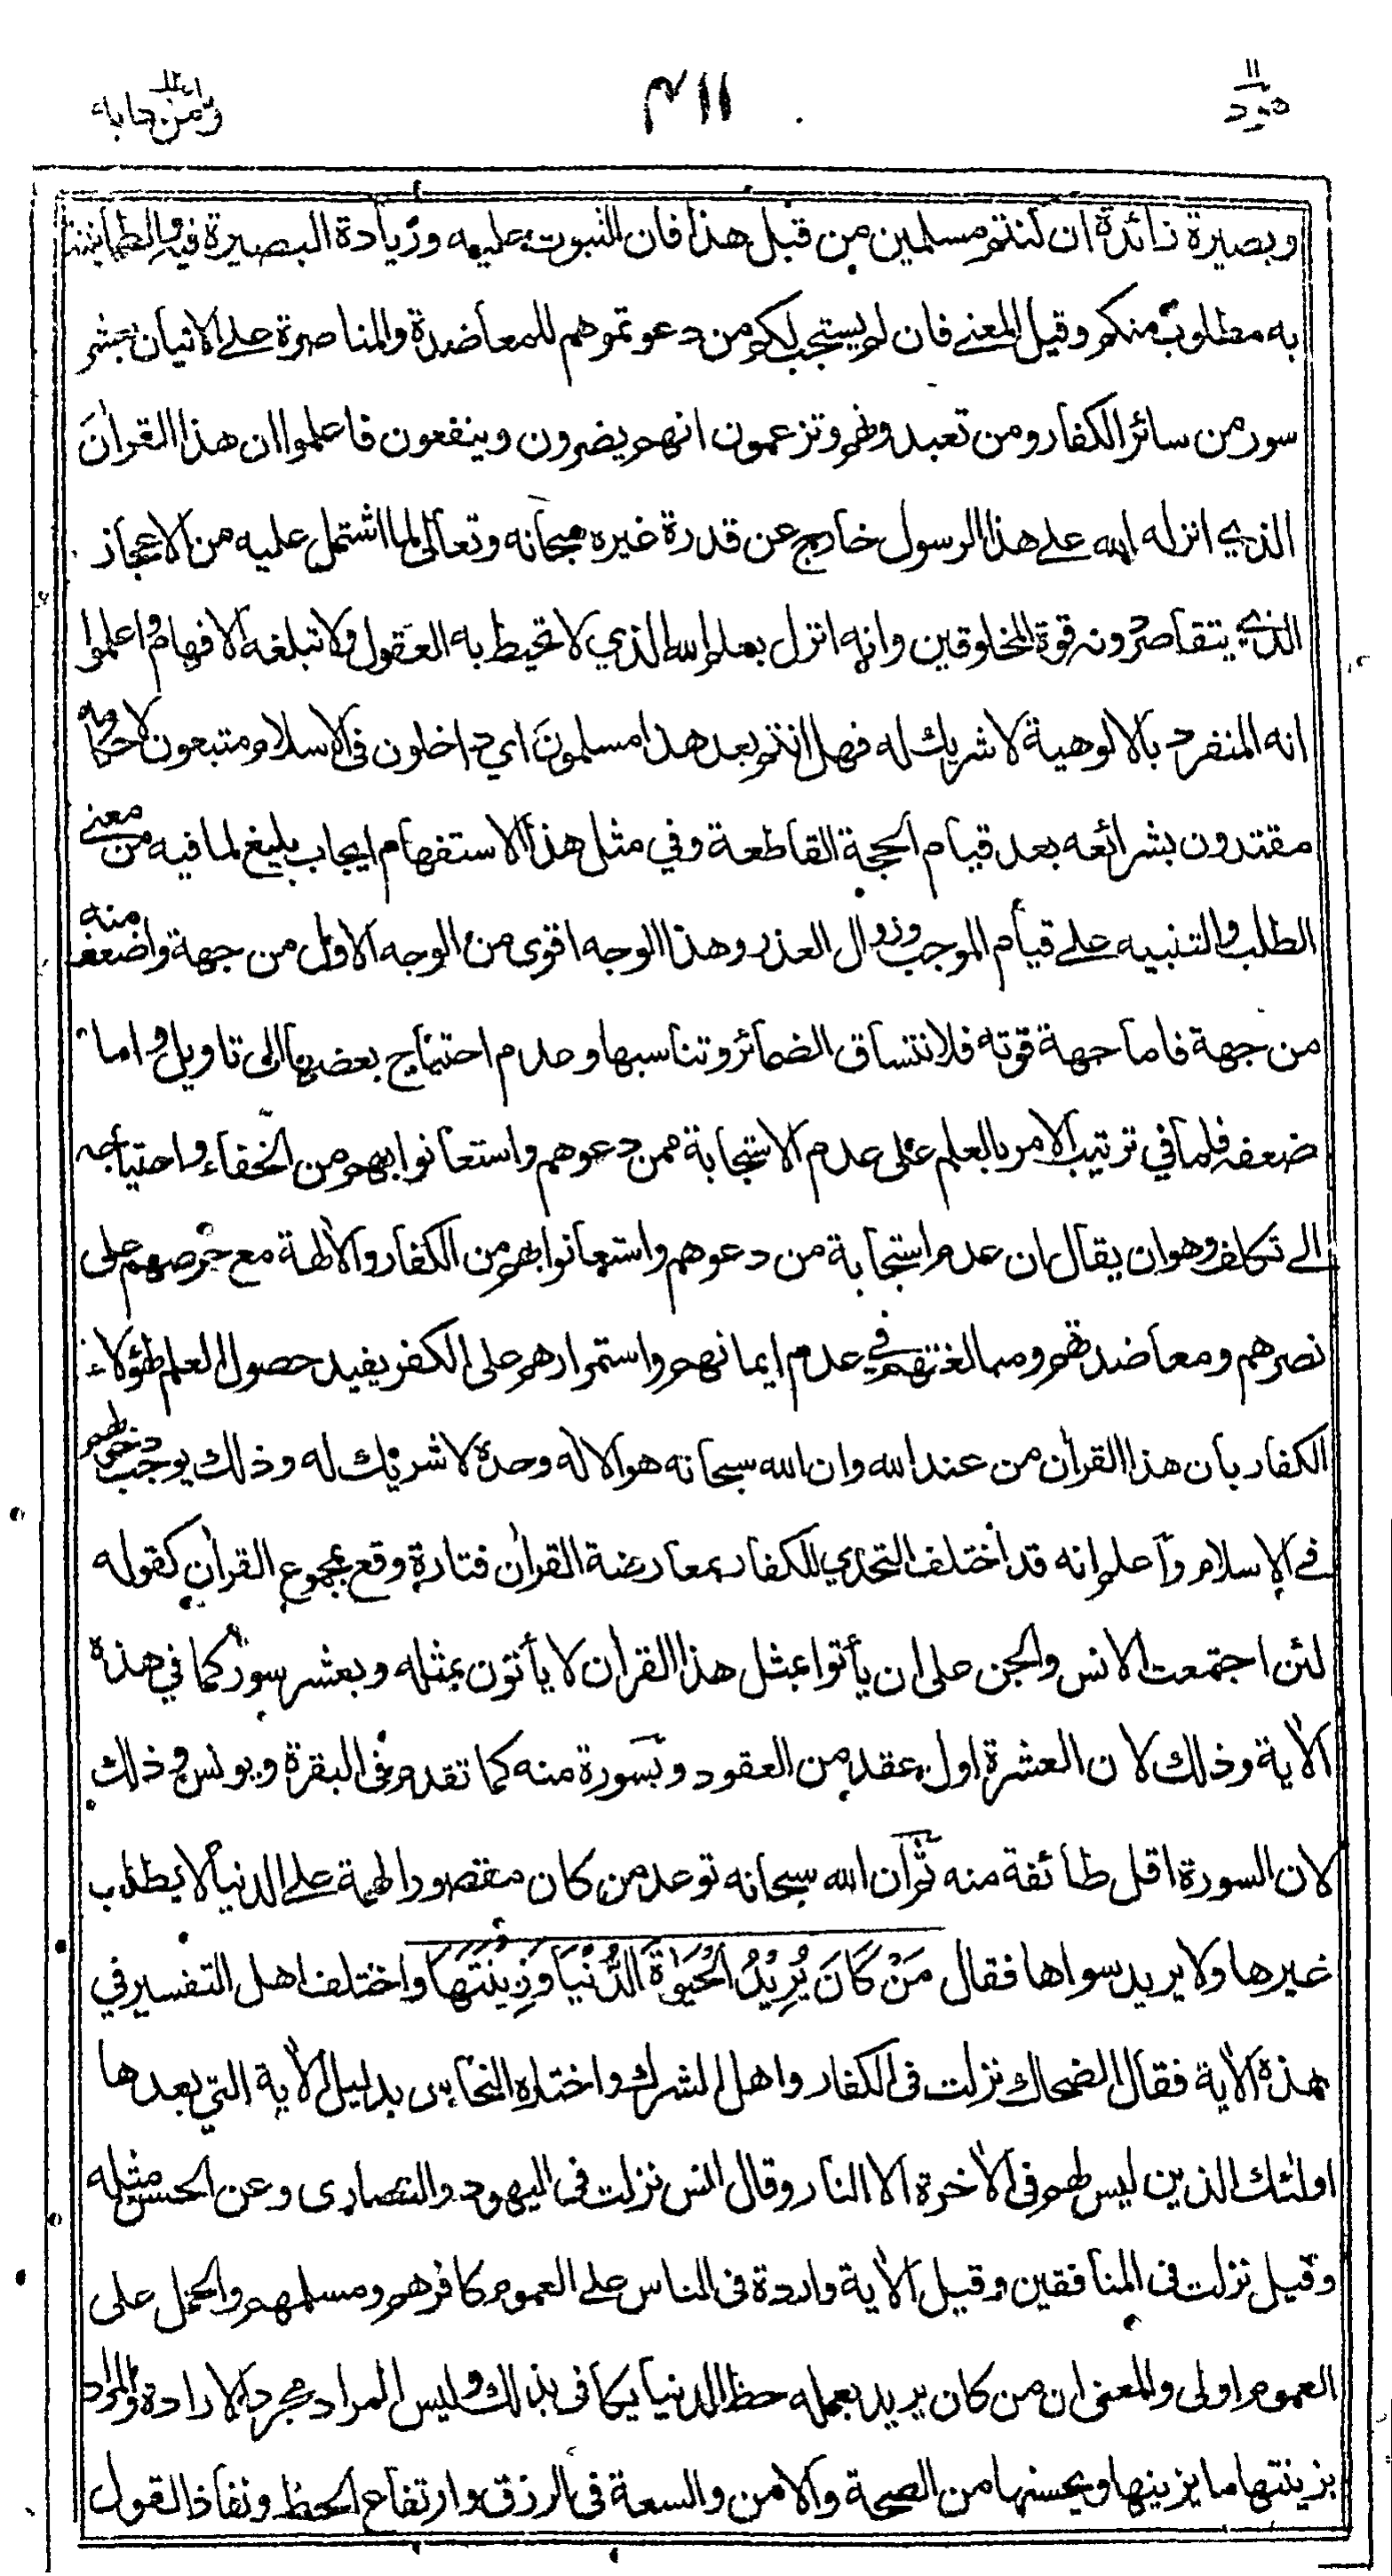 هود ١١
٤١١
ومن دابة ١٢
وبصيرة زائدة ان كنتم مسلمين من قبل هذا فان الثبوت عليه وزيادة البصيرة فيه والطمانينة
به مطلوب منكم وقيل المعنے فان لم يستجب لكم من دعوتموهم للمعاضدة والمناصرة علے الاتيان بعشر
سور من سائر الكفار ومن تعبدونهم وتزعمون انهم يضرون وينفعون فاعلموا ان هذا القراٰن
الذي انزله الله علے هذا الرسول خارج عن قدرة غيره سبحانه وتعالى لما اشتمل عليه من الاعجاز
الذي يتقاصر دونه قوة المخلوقين وانه انزل بعلم الله الذي لا تحيط به العقول ولا تبلغه الافهام واعلموا
انه المنفرد بالالوهية لا شريك له فهل انتم بعد هذا مسلمون اي داخلون فى الاسلام متبعون لاحكامه
مقتدون بشرائعه بعد قيام الحجة القاطعة وفي مثل هذا الاستفهام ايجاب بليغ لما فيه من معنے
الطلب والتنبيه علے قيام الموجب وزوال العذر وهذا الوجه اقوى من الوجه الاول من جهة واضعف منه
من جهة فاما جهة قوته فلانتساق الضمائر وتناسبها وعدم احتياج بعضها الى تاويل واما
ضعفه فلما في ترتيب الامر بالعلم على عدم الاستجابة ممن دعوهم واستعانوا بهم من الخفاء واحتياجه
الے تكلف وهو ان يقال ان عدم استجابة من دعوهم واستعانوا بهم من الكفار والاٰلهة مع حرصهم على
نصرهم ومعاضدتهم ومبالغتهم في عدم ايمانهم واستمرارهم على الكفر يفيد حصول العلم لهؤلاء
الكفار بان هذا القراٰن من عند الله وان الله سبحانه هو الاله وحدة لا شريك له وذلك يوجب دخولهم
فے الاسلام واعلم انه قد اختلف التحدي للكفار بمعارضة القراٰن فتارة وقع بمجموع القراٰن كقوله
لئن اجتمعت الانس والجن على ان يأتوا بمثل هذا القراٰن لا يأتون بمثله وبعشر سور كما في هذه
الاٰية وذلك لان العشرة اول عقد من العقود وبسورة منه كما تقدم فى البقرة ويونس وذلك
لان السورة اقل طائفة منه ثم ان الله سبحانه توعد من كان مقصور الهمة علے الدنيا لا يطلب
غيرها ولا يريد سواها فقال مَنْ كَانَ يُرِيْدُ الْحَيٰوةَ الدُّنْيَا وَزِيْنَتَهَا واختلف اهل التفسير في
هذه الاٰية فقال الضحاك نزلت فى الكفار واهل الشرك واختاره النحاس بدليل الاٰية التي بعدها
اولئك الذين ليس لهم فى الاٰخرة الا النار وقال انس نزلت فى اليهود والنصارى وعن الحسن مثله
وقيل نزلت فى المنافقين وقيل الاٰية واردة فى الناس علے العموم كافرهم ومسلمهم والحمل على
العموم اولى والمعنى ان من كان يريد بعمله حظ الدنيا يكافى بذلك وليس المراد مجرد الارادة والمراد
بزينتها ما يزينها ويحسنها من الصحة والامن والسعة فى الرزق وارتفاع الحظ ونفاذ القول